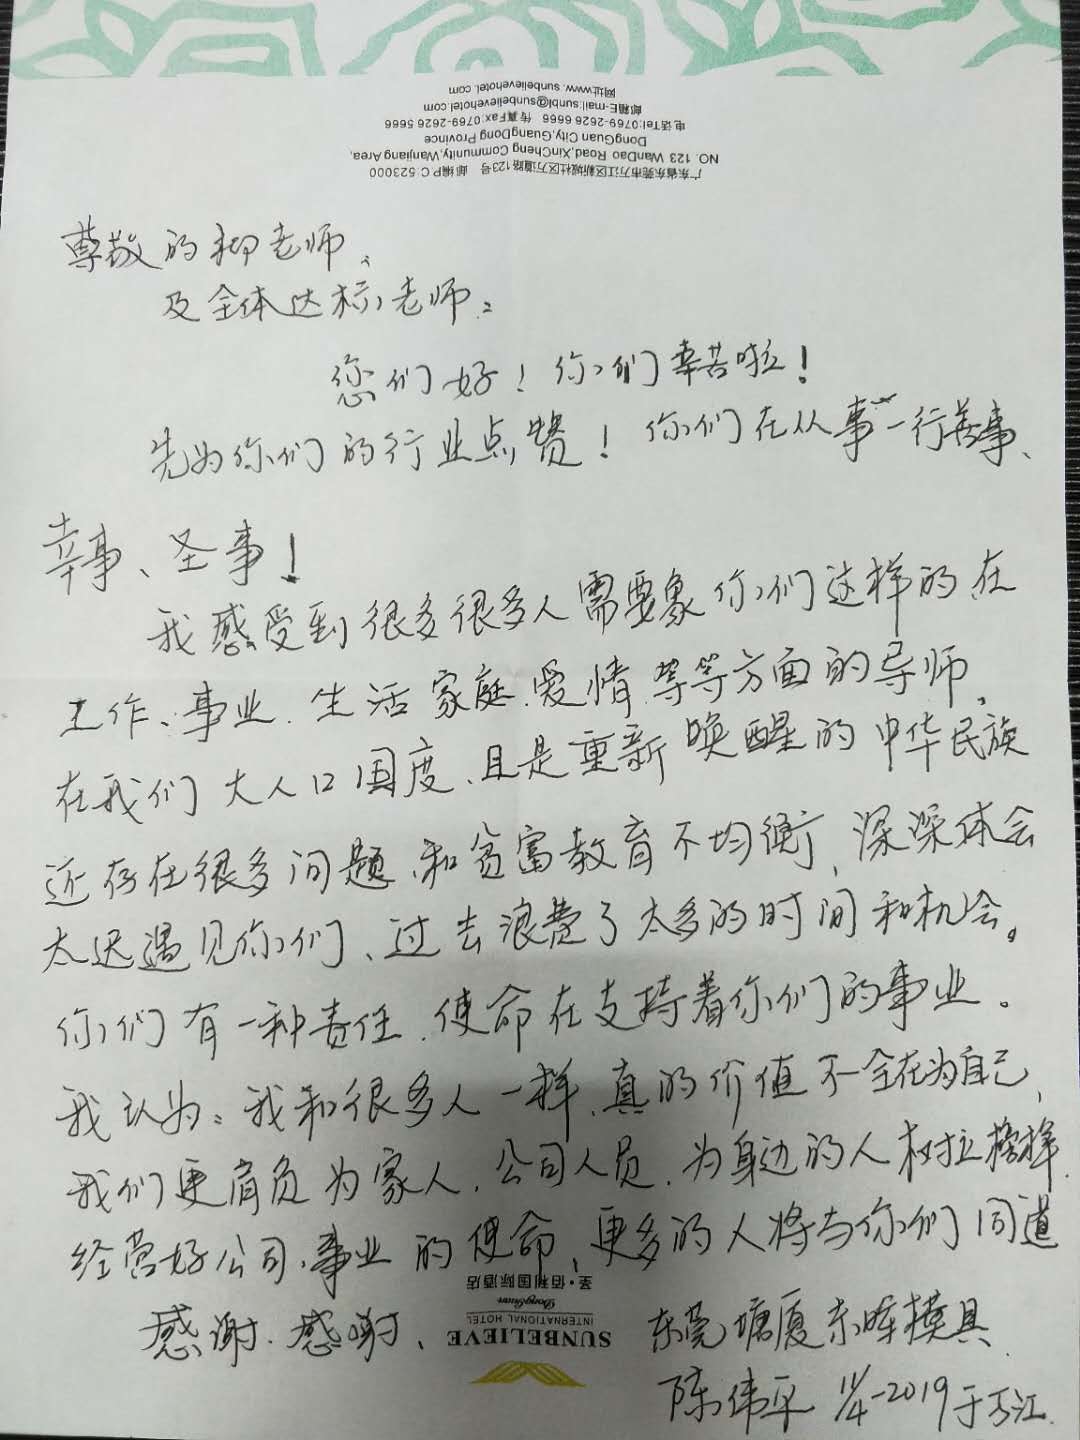 广东省东莞市万江区新城社区万道路123号 邮编P.C:523000
NO. 123 WanDao Road,XinCheng Community,Wanjiang Area,
DongGuan City,GuangDong Province
电话Tel:0769-2626 6666 传真Fax:0769-2626 5666
邮箱E-mail:sunbl@sunbelievehotel.com
网址www.sunbelievehotel.com
尊敬的柳老师、
及全体达标老师：
您们好！你们辛苦啦！
先为你们的行业点赞！你们在从事一行善事、
幸事、圣事！
我感受到很多很多人需要象你们这样的在
工作、事业、生活、家庭、爱情、等等方面的导师，
在我们大人口国度、且是重新唤醒的中华民族
还存在很多问题、和贫富教育不均衡，深深体会
太迟遇见你们、过去浪费了太多的时间和机会。
你们有一种责任、使命在支持着你们的事业。
我认为：我和很多人一样、真的价值不全在为自己、
我们更肩负为家人、公司人员、为身边的人树立榜样
经营好公司、事业的使命、更多的人将与你们同道
感谢、感谢、
东莞塘厦东晖模具
陈伟平 11/4-2019于万江
圣·佰利国际酒店
DongGuan
INTERNATIONAL HOTEL
SUNBELIEVE